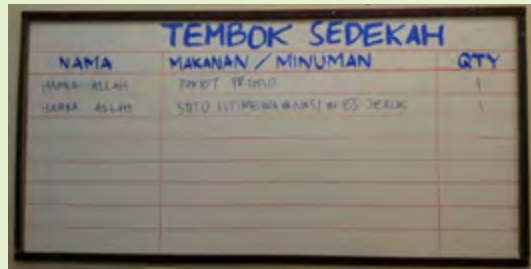 TEMBOK SEDEKAH
NAMA MAKANAN / MINUMAN QTY
HAMBA ALLAH PAKET PROMO 1
HAMBA ALLAH SOTO ISTIMEWA NASI ES JERUK 1